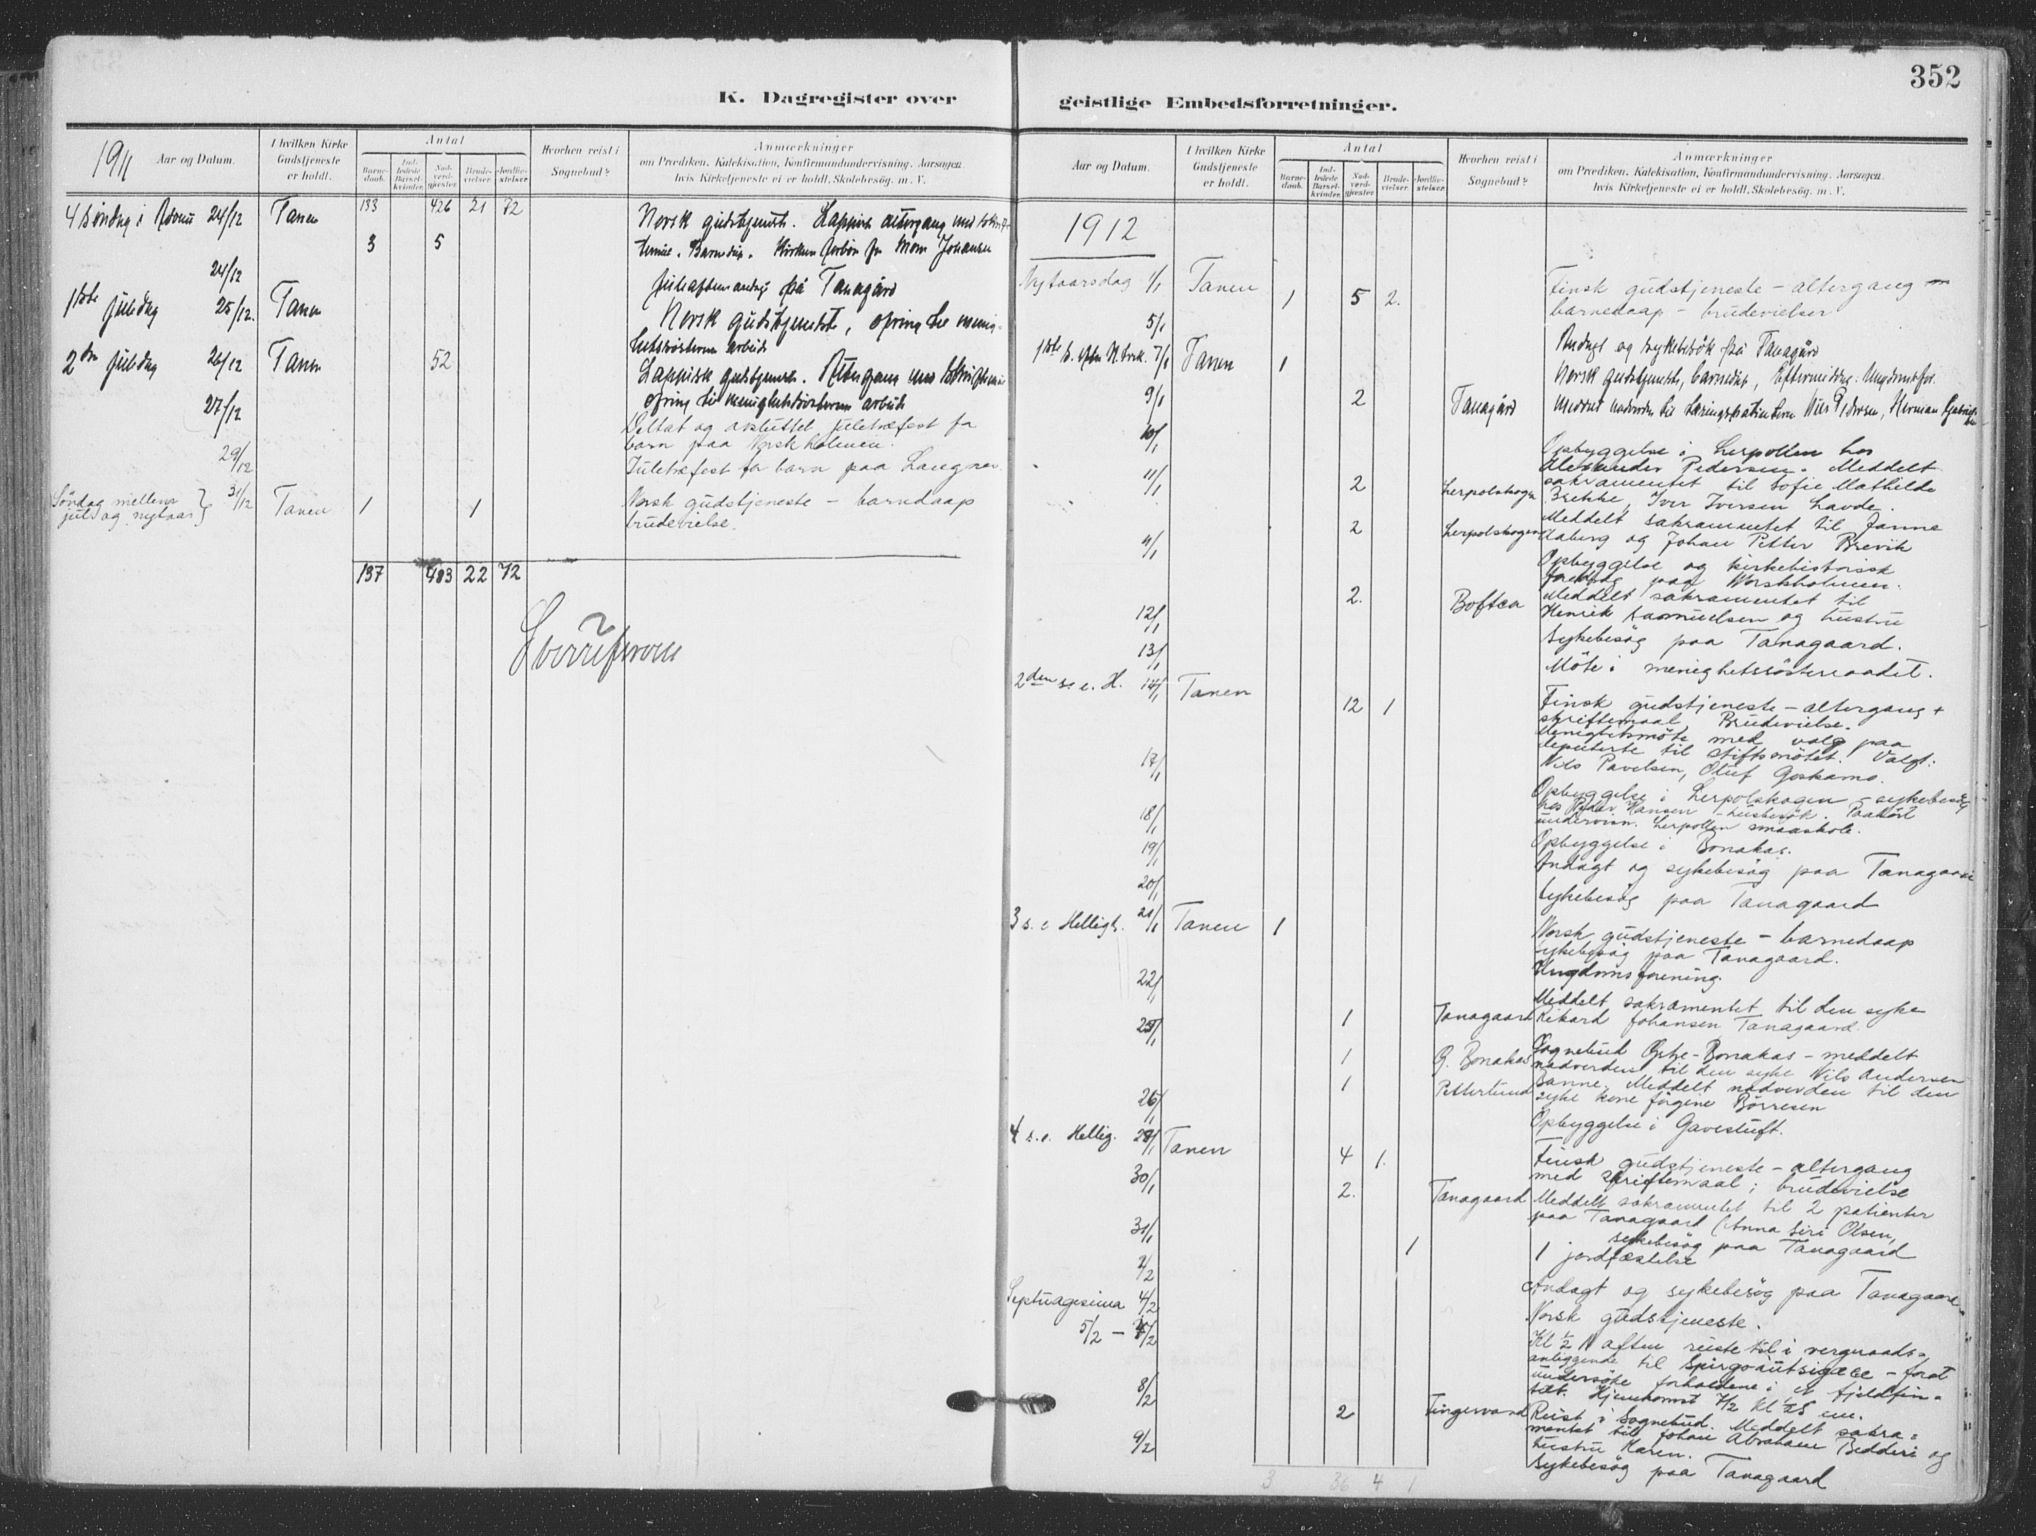 352
K. Dagregister over
1911 Aar og Datum.
I hvilken Kirke Gudstjeneste er holdt.
Antal
Barne-daab.
Ind-ledede Barsel-kvinder.
Nad-verd-gjester
Brude-vielser
Jordfæ-stelser
Hvorhen reist i Sognebud?
Anmærkninger
om Prædiken, Katekisation, Konfirmandundervisning, Aarsagen
hvis Kirketjeneste ei er holdt, Skolebesøg, m. V.
4 søndag i Advent 24/12 Tanen 133 426 21 72 Norsk gudstjeneste. Lappisk altergang med
3 5 Barnedåp. Kirken Johansen
24/12 juleaftensandagt på Tanagård
1ste juledag 25/12. Tanen Norsk gudstjeneste, ofring til menig-
hetssøsterens arbeid
2den juledag 26/12 Tanen 52 Lappisk gudstjeneste. Altergang med skriftemål
ofring til menighetssøsterens arbeid
27/12 Deltat og avsluttet juletræfest for
barn paa Norskholmen.
29/12 Juletræfest for barn paa Langnes.
Søndag mellem
jul og nytaar } 31/12 Tanen 1 1 Norsk gudstjeneste – barnedaap
brudevielse.
137 483 22 72
geistlige Embedsforretninger.
Aar og Datum.
I hvilken Kirke Gudstjeneste er holdt.
Antal
Barne-daab.
Ind-ledede Barsel-kvinder.
Nad-verd-gjester
Brude-vielser.
Jordfæ-stelser
Hvorhen reist i Sognebud?
Anmærkninger
om Prædiken, Katekisation, Konfirmandundervisning, Aarsagen
hvis Kirketjeneste ei er holdt, Skolebesøg, m. V.
1912
Nytaarsdag 1/1 Tanen 1 5 2. Finsk gudstjeneste – altergang –
barnedaap – brudevielser
5/1 Andagt og sykebesök på Tanagård
1ste s. efter H. 7/1 Tanen 1 Norsk gudstjeneste, barnedåp, Eftermiddag: Ungdomsfor.
9/1 2 Tanagård Meddelt nadverden til Nils Pedersen, Herman
10/1 Opbyggelse i Lerpollen hos
Alexander Pedersen. Meddelt
11/1 2 Lerpolskogen sakramentet til Sofie Mathilde
Brekke, Iver Iversen Lavde.
2 Lerpolskogen Meddelt sakramentet til Janna
Aaberg og Johan Petter Brevik
11/1 Opbyggelse og kirkehistorisk
foredrag paa Norskholmen.
2. Boftsa Meddelt sakramentet til
12/1 Henrik Samuelsen og hustru
Sykebesøg paa Tanagaard.
13/1 Möte i menighetssösterraadet.
2den s. e. H. 14/1 Tanen 12 1 Finsk gudstjeneste – altergang +
skriftemaal. Brudevielse.
Menighetsmöte med valg paa
deputerte til stiftsmötet. Valgt:
Nils Pavelsen, Oluf
17/1 Opbyggelse i Lerpolskogen – sykebesøg
hos Peder Hansen – husbesök. Paahört
18/1 undervisn. Lerpollen smaaskole.
19/1 Opbyggelse i Bonakas.
Andagt og sykebesøg paa Tanagaard
20/1 Sykebesøg paa Tanagaard
3 s. e. Helligt. 21/1 Tanen 1 Norsk gudstjeneste – barnedaap
Sykebesøg paa Tanagaard.
22/1 Ungdomsforening.
1 Tanagaard Meddelt sakramentet til den syke
25/1 Rikard Johansen Tanagaard.
1 Ö. Bonakas Sognebud Østre-Bonakas – meddelt
nadverden til den syke Nils Andersen
1 Petterlund Sanne. Meddelt nadverden til den
26/1 syke kone Jörgine Börresen
Opbyggelse i Gavestuft.
4 s. e. Hellig. 28/1 Tanen 4 1. Finsk gudstjeneste – altergang
med skriftemaal; brudevielse
30/1 2. Tanagaard Meddelt sakramentet til 2 patienter
paa Tanagaard (Anna Siri Olsen,
31/1 Sykebesøg paa Tanagaard
1 1 jordfæstelse
2/2 Andagt og sykebesøg paa Tanagaard
Septuagesima 4/2 Norsk gudstjeneste.
5/2 – 7/2 Kl ½ 11 aften reiste til i vergeraads-
anliggende til – forat
undersöke forholdene i et fjeldfin-
telt. Hjemkomst 7/2 kl em.
8/2 2 Fingervand Reist i Sognebud. Meddelt sakra-
mentet til Johan Abraham Bedderi og
9/2 hustru Karen.
Sykebesøg paa Tanagaard
3 36 4 1